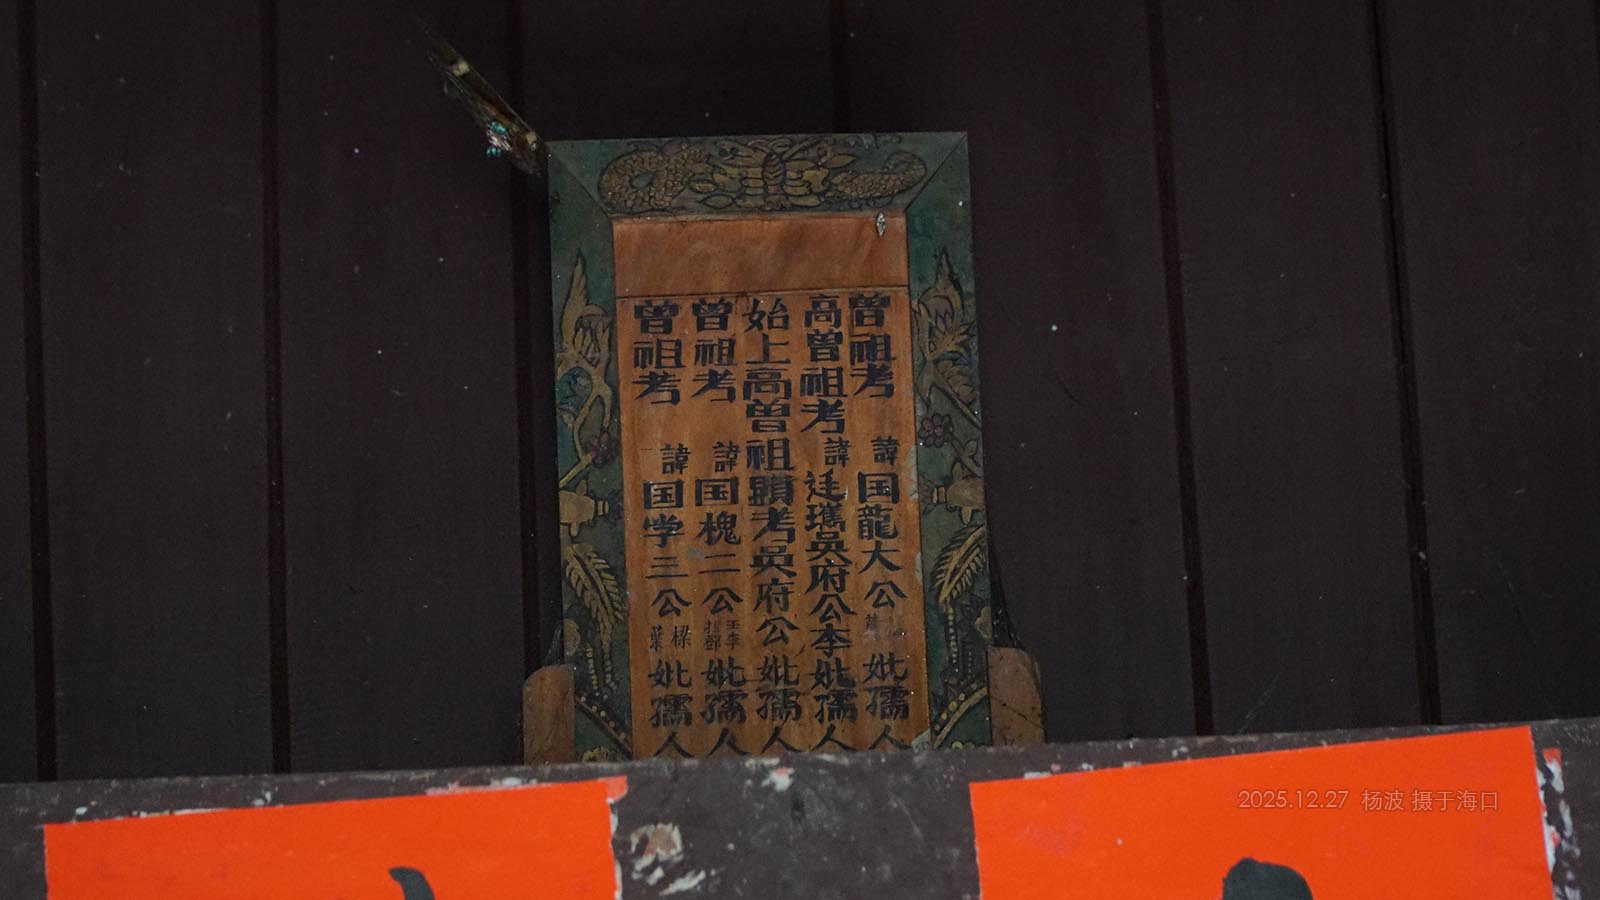 曾祖考 諱国龍大公 妣孺人
高曾祖考諱廷㺞吳府公李妣孺人
始上高曾祖顯考吳府公妣孺人
曾祖考 諱国槐二公 王李 妣孺人
曾祖考 諱国学三公 樑葉 妣孺人
2025.12.27 杨波 摄于海口